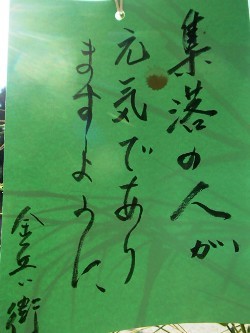 集落の人が
元気であり
ますように
金兵衛